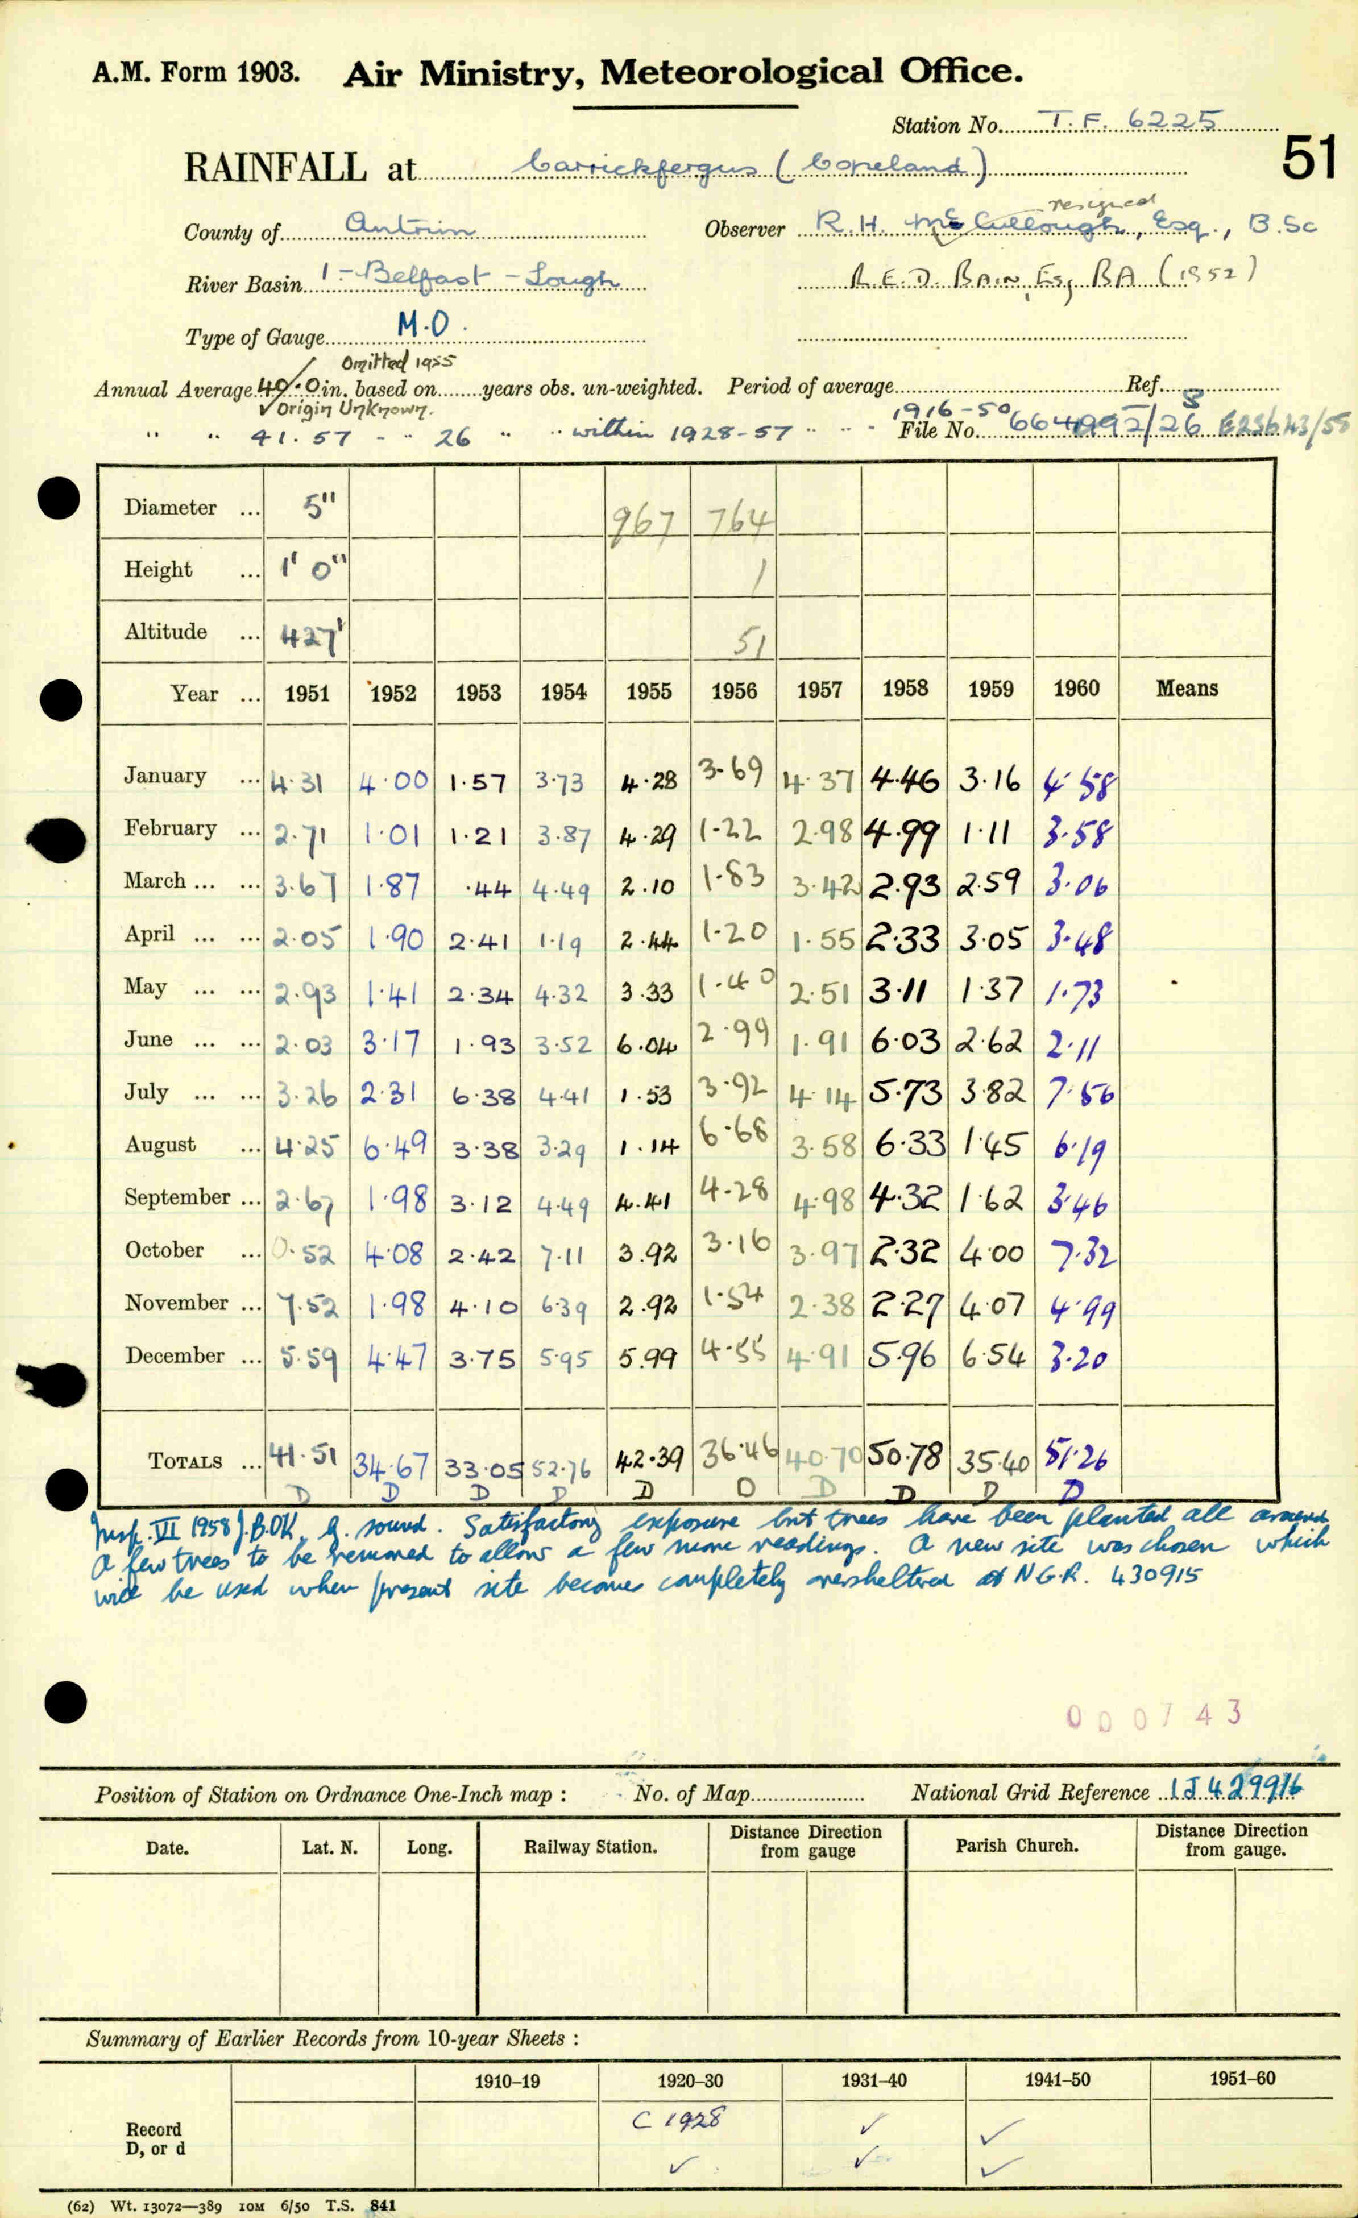 A.M. Form 1903. Air Ministry, Meteorological Office.
Station No. T.F. 6225
51
RAINFALL at Carrickfergus (Copeland)
resigned
County of Antrim Observer R.H. McCullough, Esq., B.Sc
River Basin 1 - Belfast - Lough R.E.D. BAIN, Esq BA (1952)
Type of Gauge M.O.
Omitted 1955
Annual Average 40.0 in. based on years obs. un-weighted. Period of average Ref.
✓ Origin Unknown. 1916-50
" " 41.57 - " 26 " " within 1928-57 " - " File No.
Diameter ... 5" 967 764
Height ... 1' 0" 1
Altitude ... 427' 51
Year ... 1951 1952 1953 1954 1955 1956 1957 1958 1959 1960 Means
January ... 4.31 4.00 1.57 3.73 4.28 3.69 4.37 4.46 3.16 4.58
February ... 2.71 1.01 1.21 3.87 4.29 1.22 2.98 4.99 1.11 3.58
March ... ... 3.67 1.87 .44 4.49 2.10 1.83 3.42 2.93 2.59 3.06
April ... ... 2.05 1.90 2.41 1.19 2.44 1.20 1.55 2.33 3.05 3.48
May ... ... 2.93 1.41 2.34 4.32 3.33 1.40 2.51 3.11 1.37 1.73
June ... ... 2.03 3.17 1.93 3.52 6.04 2.99 1.91 6.03 2.62 2.11
July ... ... 3.26 2.31 6.38 4.41 1.53 3.92 4.14 5.73 3.82 7.56
August ... 4.25 6.49 3.38 3.29 1.14 6.68 3.58 6.33 1.45 6.19
September ... 2.67 1.98 3.12 4.49 4.41 4.28 4.98 4.32 1.62 3.46
October ... 0.52 4.08 2.42 7.11 3.92 3.16 3.97 2.32 4.00 7.32
November ... 7.52 1.98 4.10 6.39 2.92 1.54 2.38 2.27 4.07 4.99
December ... 5.59 4.47 3.75 5.95 5.99 4.55 4.91 5.96 6.54 3.20
TOTALS ... 41.51 34.67 33.05 52.76 42.39 36.46 40.70 50.78 35.40 51.26
D D D D D D D D D D
Insp. VI 1958 J.B.OK. G. sound. Satisfactory exposure but trees have been planted all around
A few trees to be removed to allow a few more readings. A new site was chosen which
will be used when present site becomes completely oversheltered at N.G.R. 430915
000743
Position of Station on Ordnance One-Inch map : No. of Map National Grid Reference IJ 429916
Date. Lat. N. Long. Railway Station. Distance Direction from gauge Parish Church. Distance Direction from gauge.
Summary of Earlier Records from 10-year Sheets :
1910–19 1920–30 1931–40 1941–50 1951–60
Record C 1928 ✓ ✓
D, or d ✓ ✓ ✓
(62) Wt. 13072—389 10M 6/50 T.S. 841